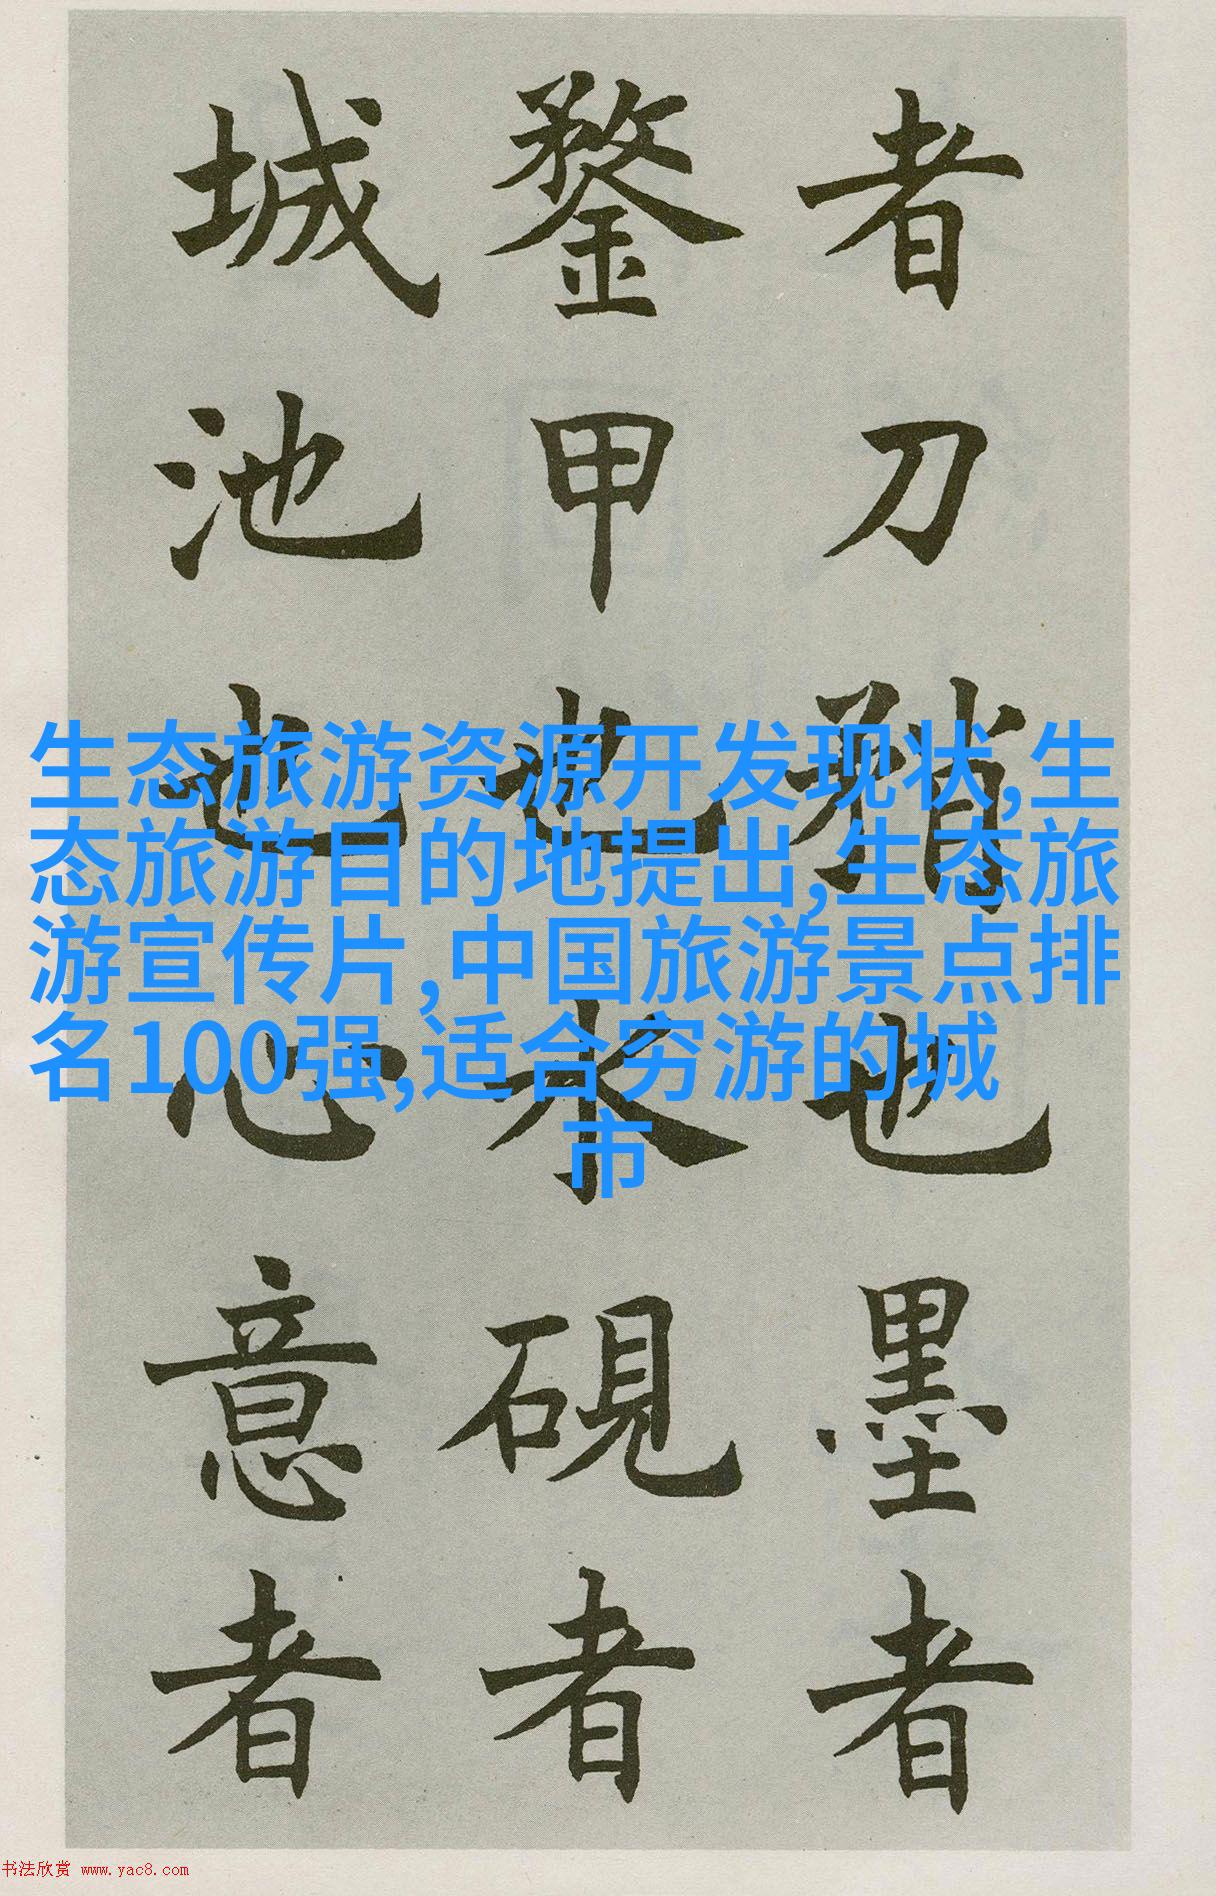 者刀矟也墨者
鍪甲也水硯者
城池也心意者
生态旅游资源开发现状,生
态旅游目的地提出,生态旅
游宣传片,中国旅游景点排
名100强,适合穷游的城
市
书法欣赏 www.yac8.com